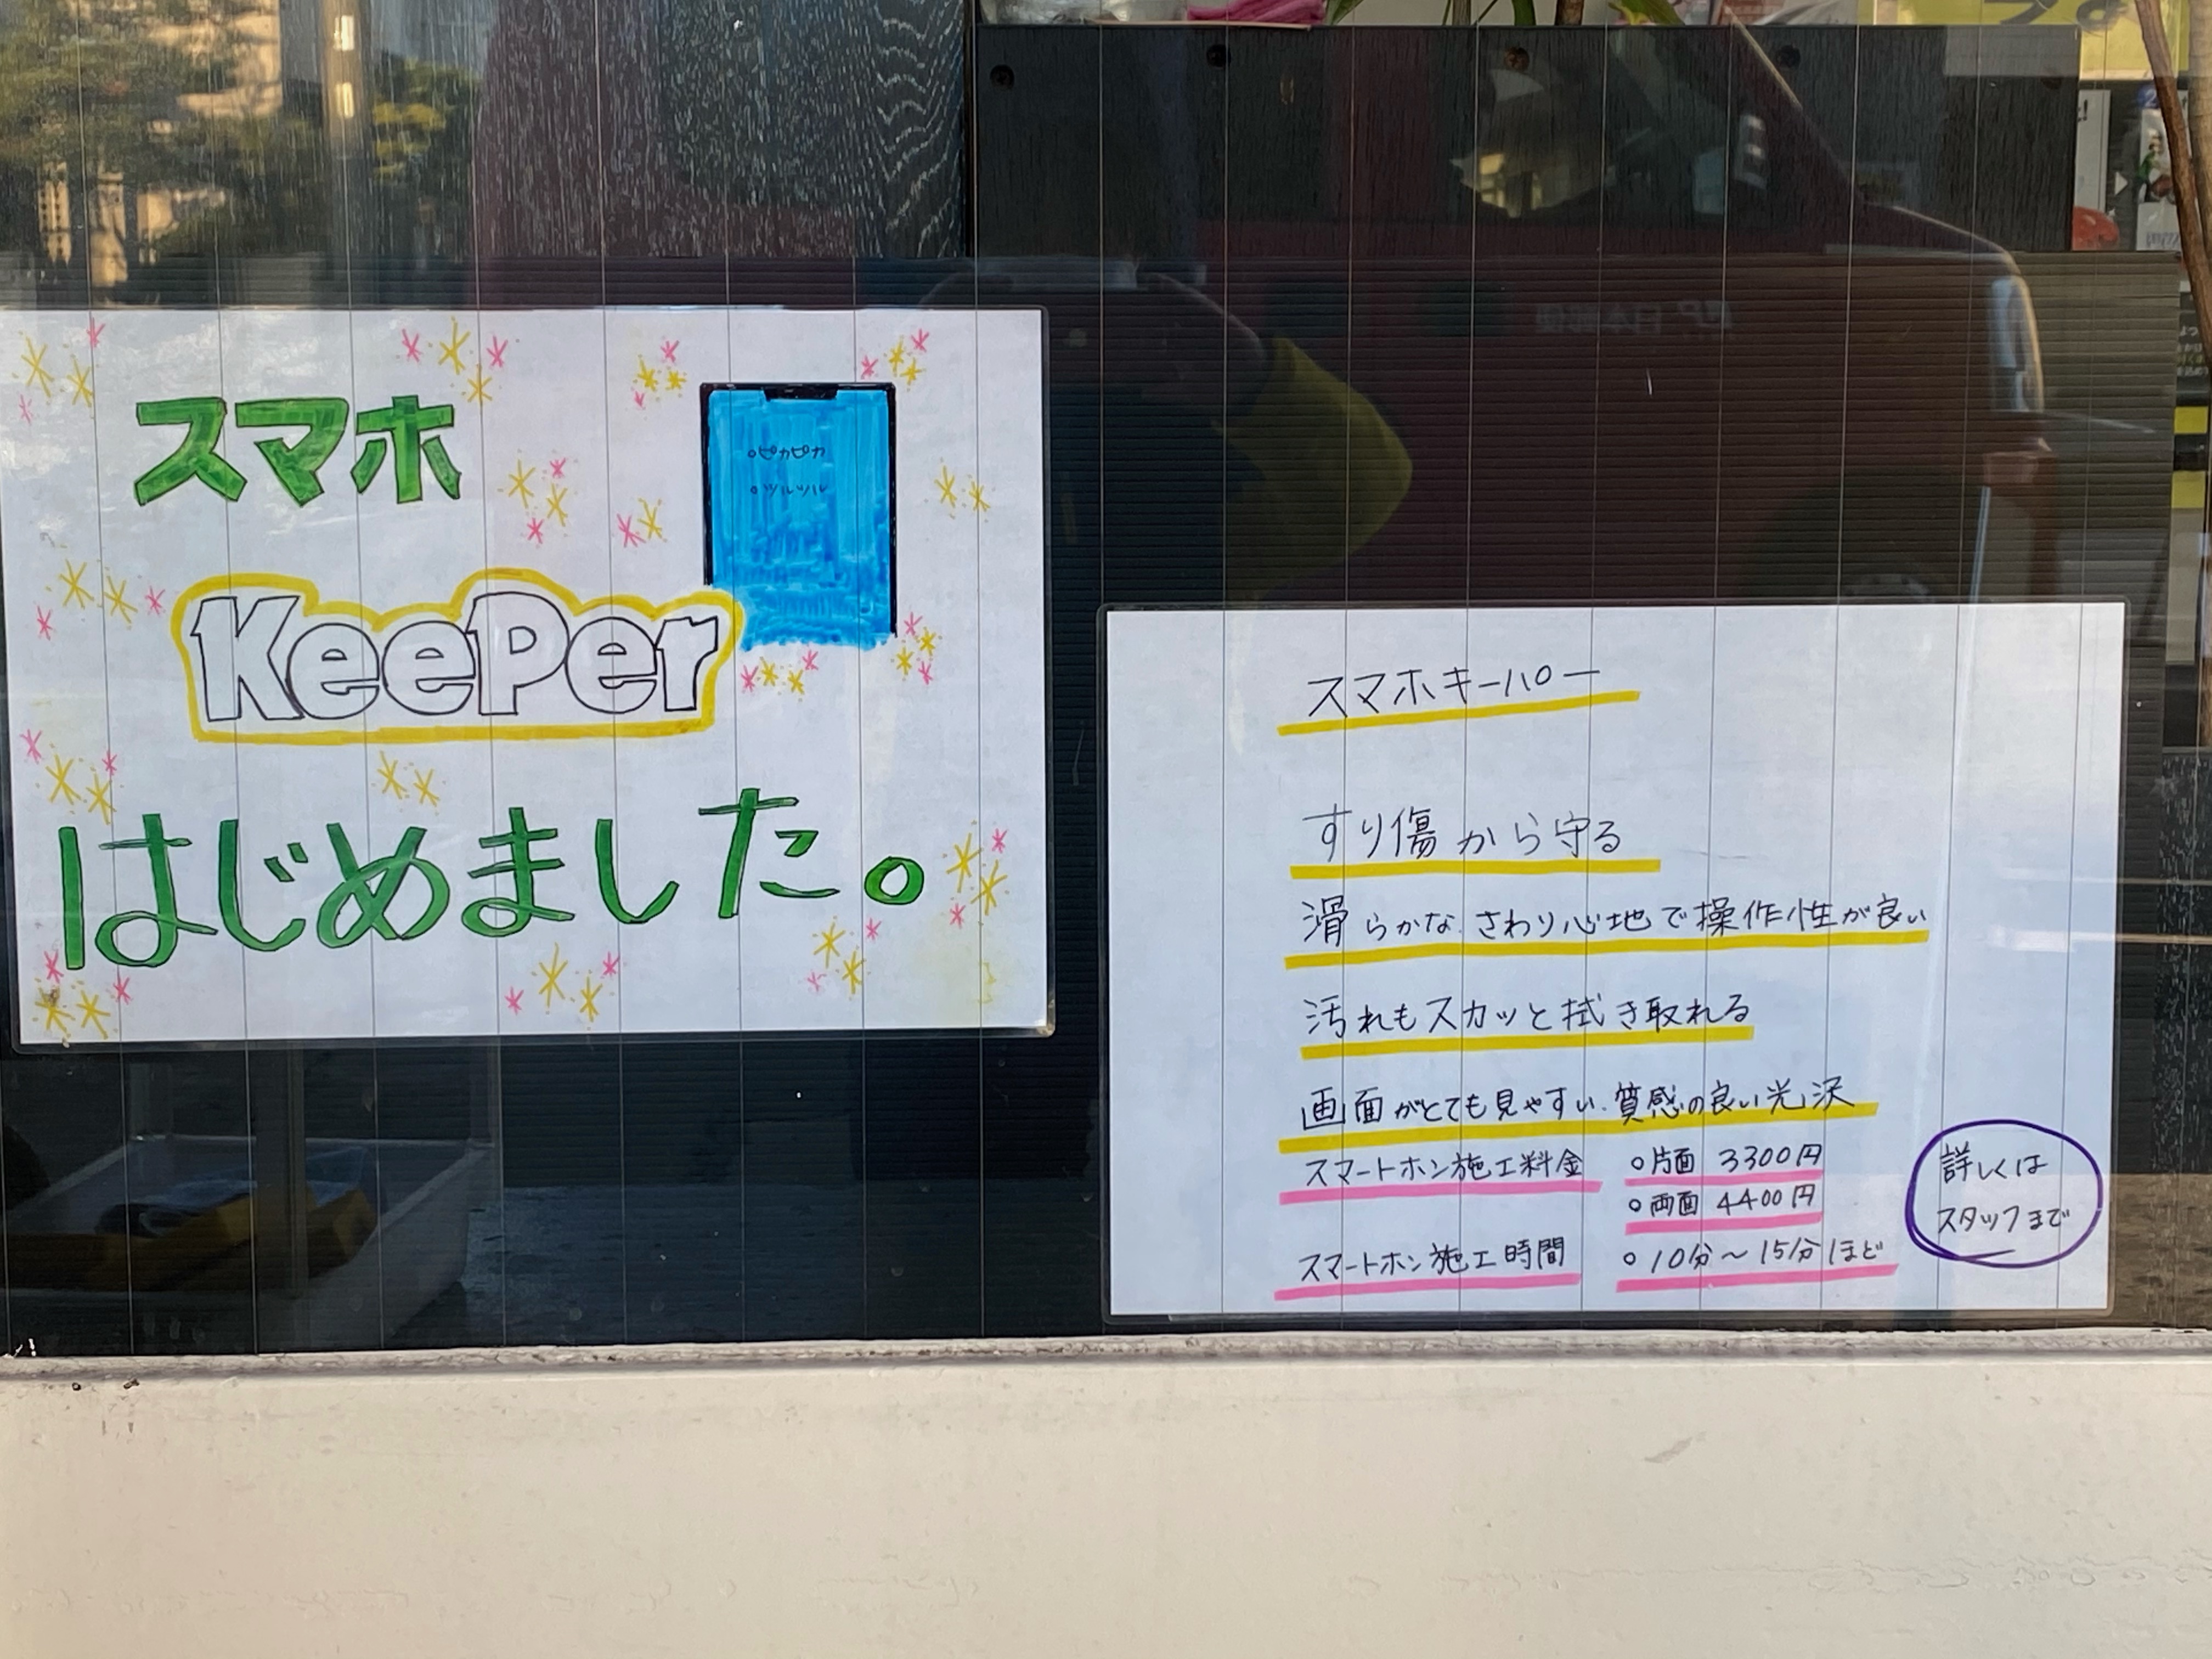 スマホ
○ピカピカ
○ツルツル
KeePer
はじめました。
スマホキーパー
すり傷から守る
滑らかなさわり心地で操作性が良い
汚れもスカッと拭き取れる
画面がとても見やすい.質感の良い光沢
スマートホン施工料金 ○片面 3300円
○両面 4400円
スマートホン施工時間 ○10分～15分ほど
詳しくは
スタッフまで